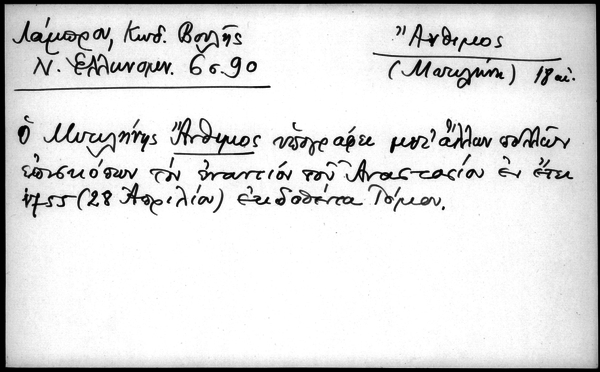 Λάμπρου, Κωδ. Βουλῆς
Ν. Ἑλληνομν. 6 σ. 90
Ἄνθιμος
(Μυτιλήνη) 18 αἰ.
Ὁ Μυτιλήνης Ἄνθιμος ὑπογράφει μετ' ἄλλων πολλῶν
ἐπισκόπων τὸν ἐναντίον τοῦ Ἀναστασίου ἐν ἔτει
(28 Ἀπριλίου) ἐκδοθέντα Τόμον.